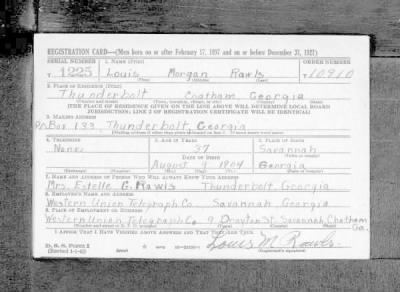 REGISTRATION CARD—(Men born on or after February 17, 1897 and on or before December 31, 1921)
SERIAL NUMBER 1. NAME (Print) ORDER NUMBER
T 1225 Louis Morgan Rawls 10910
(First) (Middle) (Last)
2. PLACE OF RESIDENCE (Print)
Thunderbolt Chatham, Georgia
(Number and street) (Town, township, village, or city) (County) (State)
[THE PLACE OF RESIDENCE GIVEN ON THE LINE ABOVE WILL DETERMINE LOCAL BOARD
JURISDICTION; LINE 2 OF REGISTRATION CERTIFICATE WILL BE IDENTICAL]
3. MAILING ADDRESS
P.O. Box 133, Thunderbolt, Georgia
[Mailing address if other than place indicated on line 2. If same insert word same]
4. TELEPHONE 5. AGE IN YEARS 6. PLACE OF BIRTH
None 37 Savannah
DATE OF BIRTH (Town or county)
August 9 1904 Georgia
(Mo.) (Day) (Yr.) (State or country)
7. NAME AND ADDRESS OF PERSON WHO WILL ALWAYS KNOW YOUR ADDRESS
Mrs. Estelle G. Rawls Thunderbolt, Georgia
8. EMPLOYER'S NAME AND ADDRESS
Western Union Telegraph Co. Savannah, Georgia
9. PLACE OF EMPLOYMENT OR BUSINESS
Western Union Telegraph Co 9 Drayton St. Savannah, Chatham
Ga.
(Number and street or R. F. D. number) (Town) (County) (State)
I AFFIRM THAT I HAVE VERIFIED ABOVE ANSWERS AND THAT THEY ARE TRUE.
D. S. S. FORM 1
(Revised 1-1-42)
Louis M. Rawls.
(Registrant's signature)